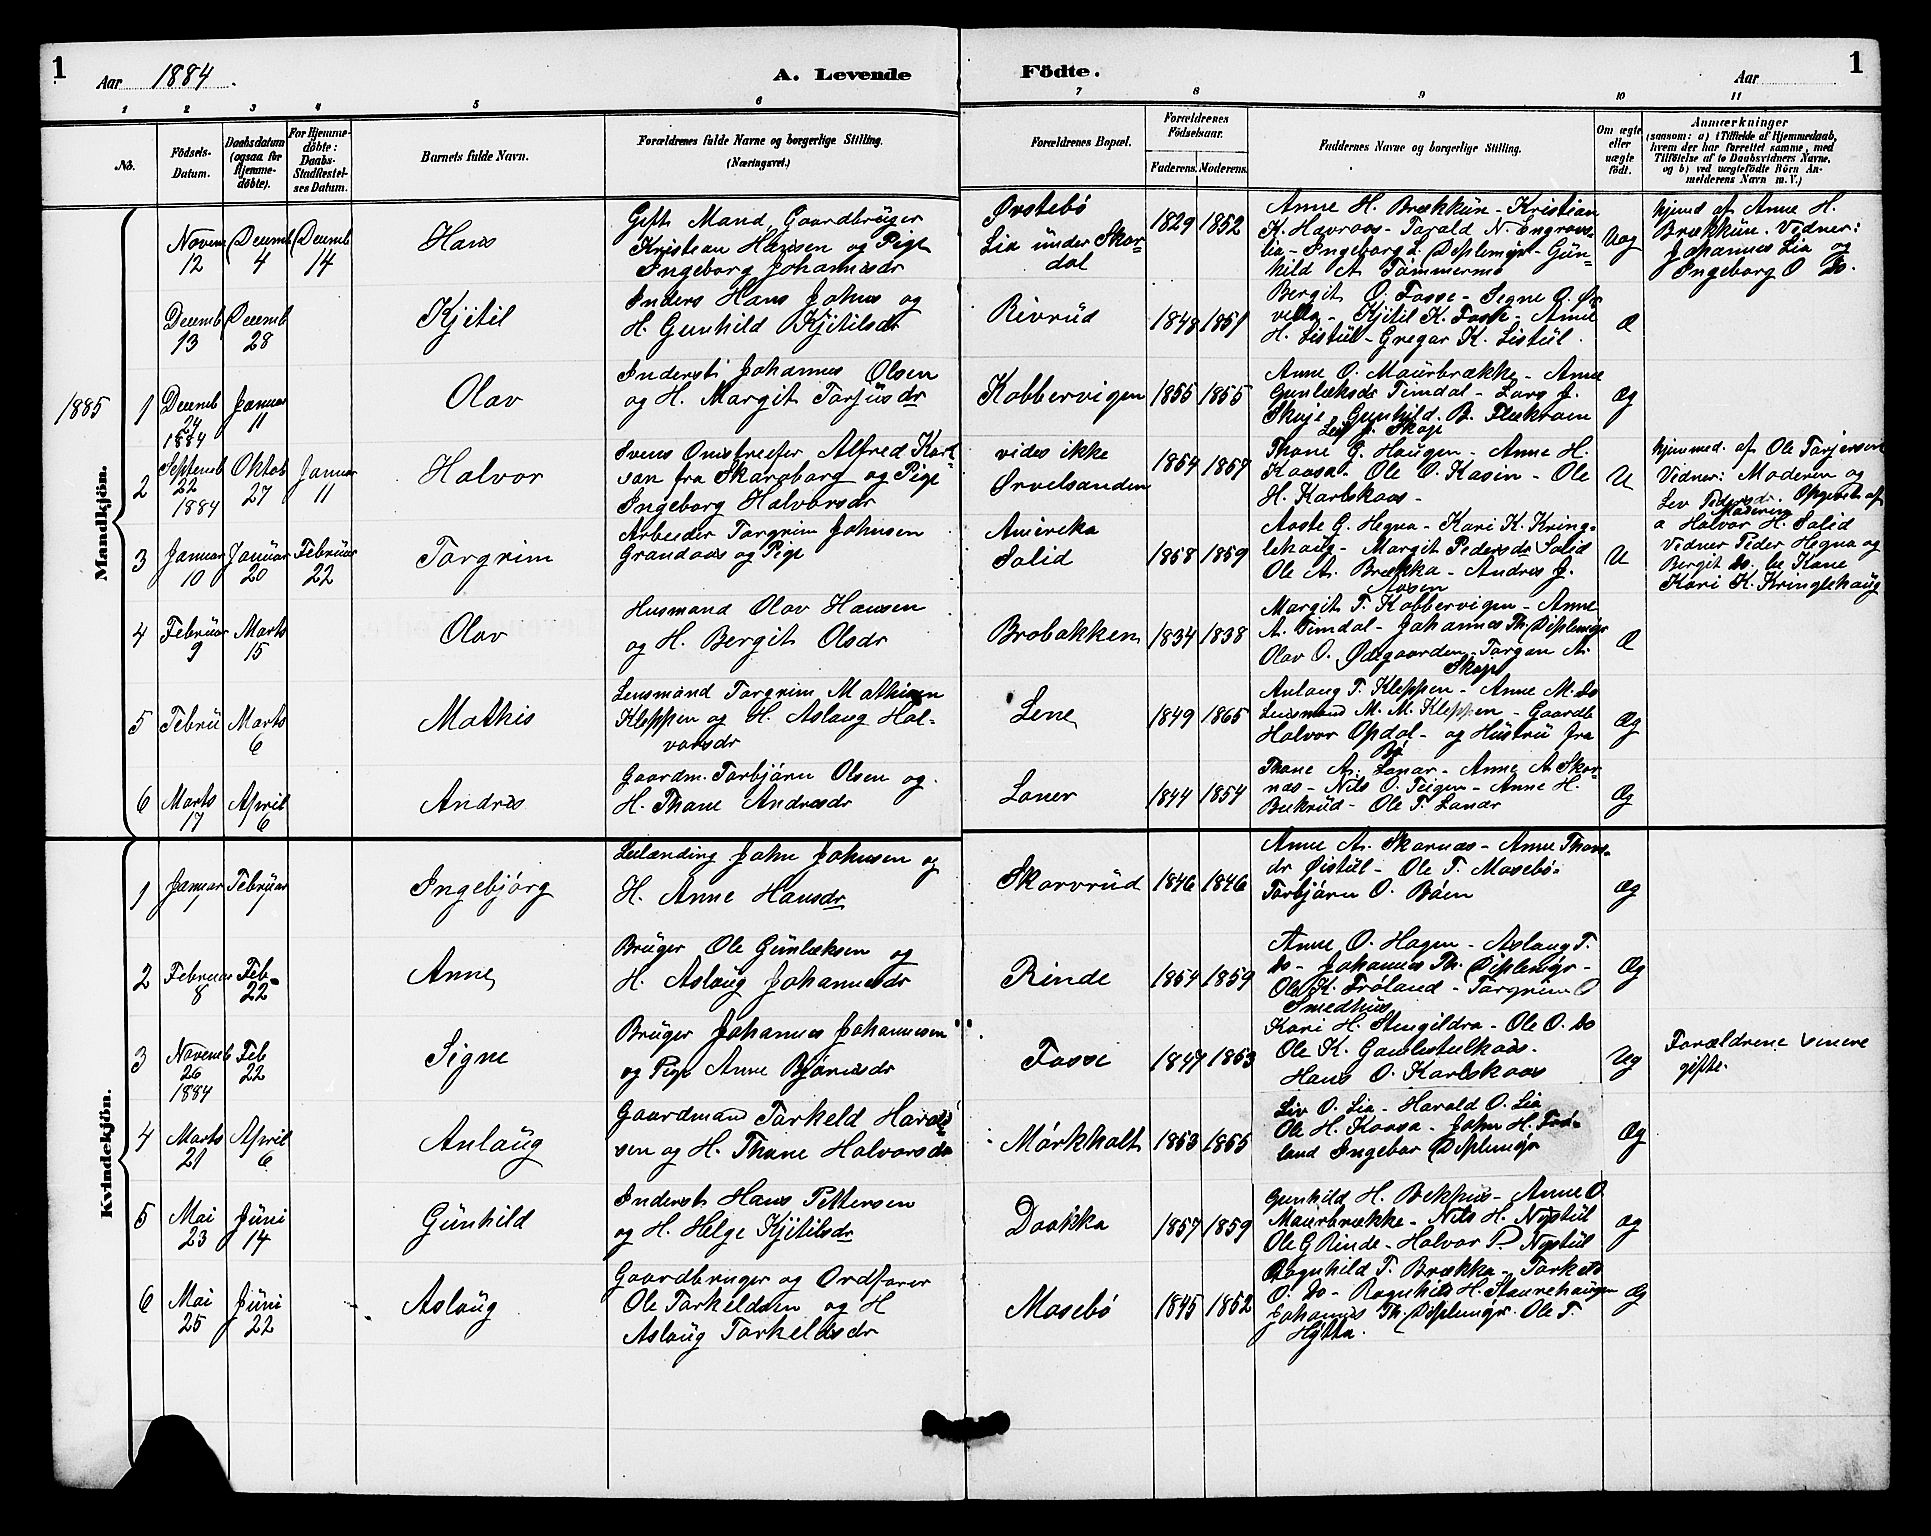 1
Aar 1884.
A. Levende
Födte.
Aar
1
1 2 3 4 5 6 7 8 9 10 11
No.
Födsels-Datum.
Daabsdatum (ogsaa for Hjemmedöbte).
For Hjemmedöbte: Daabs-Stadfæstelses Datum.
Barnets fulde Navn.
Forældrenes fulde Navne og borgerlige Stilling.
(Næringsvei.)
Forældrenes Bopæl.
Forældrenes Födselsaar.
Faderens. Moderens.
Faddernes Navne og borgerlige Stilling.
Om ægte eller uægte födt.
Anmærkninger
(saasom: a) i Tilfælde af Hjemmedaab, hvem der har forrettet samme, med Tilföielse af to Daabsvidners Navne, og b) ved uægtefödte Börn Anmelderens Navn m. V.)
Mandkjön.
Novem 12
Decemb 4
Decemb 14
Hans
Gift Mand, Gaardbrüger
Kristian Hansen og Pige
Ingeborg Johannesdr
Øvstebö
Lia ünder Skor-
dal
1829 1852
Anne H. Brækkün - Kristian
K. Havraas - Tarald N. Engravs-
lia - Ingeborg L. Displemyr - Gün-
hild A. Tømmermo
Uæg
hjemd af Anne H.
Brækkün. Vidner:
Johannes Lia og
Ingeborg O Do.
Decemb 13
Decemb 28
Kjitil
Inders Hans Johns og
H. Gunhild Kjitilsdr
Rivrüd
1848 1851
Bergit O. Fosse - Signe O. Ør
vella - Kjitil K. Fosse - Anne
H. Listül - Gregar K. Listül.
Æ
1885
1
Decemb 24 1884
Januar 11
Olav
Inderst Johannes Olsen
og H. Margit Torjüsdr
Kobbervigen
1855 1855
Anne O. Maurbrække - Anne
Gunlæksdr Timdal - Larg J.
Skoje - Gunhild B. Flekroin
Leif J. Skoje
Æg
2
Septemb 22 1884
Oktob 27
Januar 11
Halvor
Svens Omstreifer Alfred Karl
son fra Skaroborg og Pige
Ingeborg Halvorsdr
vides ikke
Ørvelsanden
1854 1857
Thone G. Haugen - Anne H.
Kaasa - Ole O. Kasin - Ole
H. Karlskaas -
U
hjemmed. af Ole Torjersen
Vidner: Moderen og
Lev Pedersdr. Opgivet af
Moderen
3
Januar 10
Januar 20
Februar 22
Torgrim
Arbeider Torgrim Johnsen
Grandaas og Pige
Amerika
Solid
1858 1859
Aaste G. Hegna - Kari K. Kring-
lehaug - Margit Pedersdr Solid
Ole A. Brækka - Andres J.
Aasen
U
a Halvor H. Solid
Vidner Peder Hegna og
Bergit do. be Kone
Kari K. Kringlehaüg
4
Februar 9
Marts 15
Olav
Husmand Olav Hansen
og H. Bergit Olsdr
Brobakken
1834 1838
Margit T. Kobbervigen - Anne
A. Timdal - Johannes Th. Displemyr
Olav O. Ødegaarden - Torgon A.
Skoje
Æ
5
Febrü
Marts 6
Mathis
Lensmand Torgrim Mathisen
Kleppen og H. Aslaug Hal-
vorsdr
Lene
1849 1865
Anlaug T. Kleppen - Anne M. do
Lensmand M. M. Kleppen - Gaardb
Halvor Opdal - og Hustrü fra
Bö
Æg
6
Marts 17
April 6
Andres
Gaardm. Torbjörn Olsen og.
H. Thone Andresdr
Loner
1844 1854
Thone A. Lonar - Anne A. Skor-
nas - Nils O. Teigen - Anne H.
Bekrüd - Ole T. Lonar
Æg
Kvindekjön.
1
Januar
Februar
Ingebjörg
Leilænding John Johnsen og
H. Anne Hansdr
Skorvrüd
1846 1846
Anne A. Skornas - Anne Thors-
dr Øistül - Ole T. Mosebö -
Torbjörn O. Böen
Æg
2
Februar 8
Feb. 22
Anne
Brüger Ole Günlæksen og
H. Aslaüg Johannesdr
Rinde
1854 1859
Anne O. Hagen - Aslaug T.
do - Johannes Th. Displemyr -
Ole K. Fröland - Torgrim O
Smedhüs
Æg
3
Novemb 26 1884
Feb 22
Signe
Brüger Johannes Johannesen
og Pige Anne Björnsdr
Fosse
1847 1853
Kari H. Stengildra - Ole O. do
Ole K. Gamlestulkaas.
Hans O. Karlskaas
Uæg
Forældrene senere
gifte.
4
Marts 21
April 6
Anlaüg
Gaardmand Torkeld Harald
sen og H. Thone Halvorsdr
Mörkholt
1853 1855
Liv O. Lia - Harald O. Lia
Ole H. Kaasa - John H. Frö-
land Ingebor Displemyr
Æg
5
Mai 23
Jüni 14
Günhild
Inderst Hans Pettersen
og H. Helge Kjitilsdr
Daakka
1857 1859
Gunhild H. Bekhus - Anne O.
Maurbrække - Nils H. Nystül
Ole G Rinde - Halvor P. Nystül
Æg
6
Mai 25
Jüni 22
Aslaüg
Gaardbruger og Ordförer
Ole Torkeldsen og H
Aslaüg Torkeldsdr
Mosebö
1845 1852
Ragnhild T. Brækka - Torkeld
O. do - Ragnhild H. Staurehaugen
Johannes Th. Displemyr. Ole T.
Hytta.
Æg